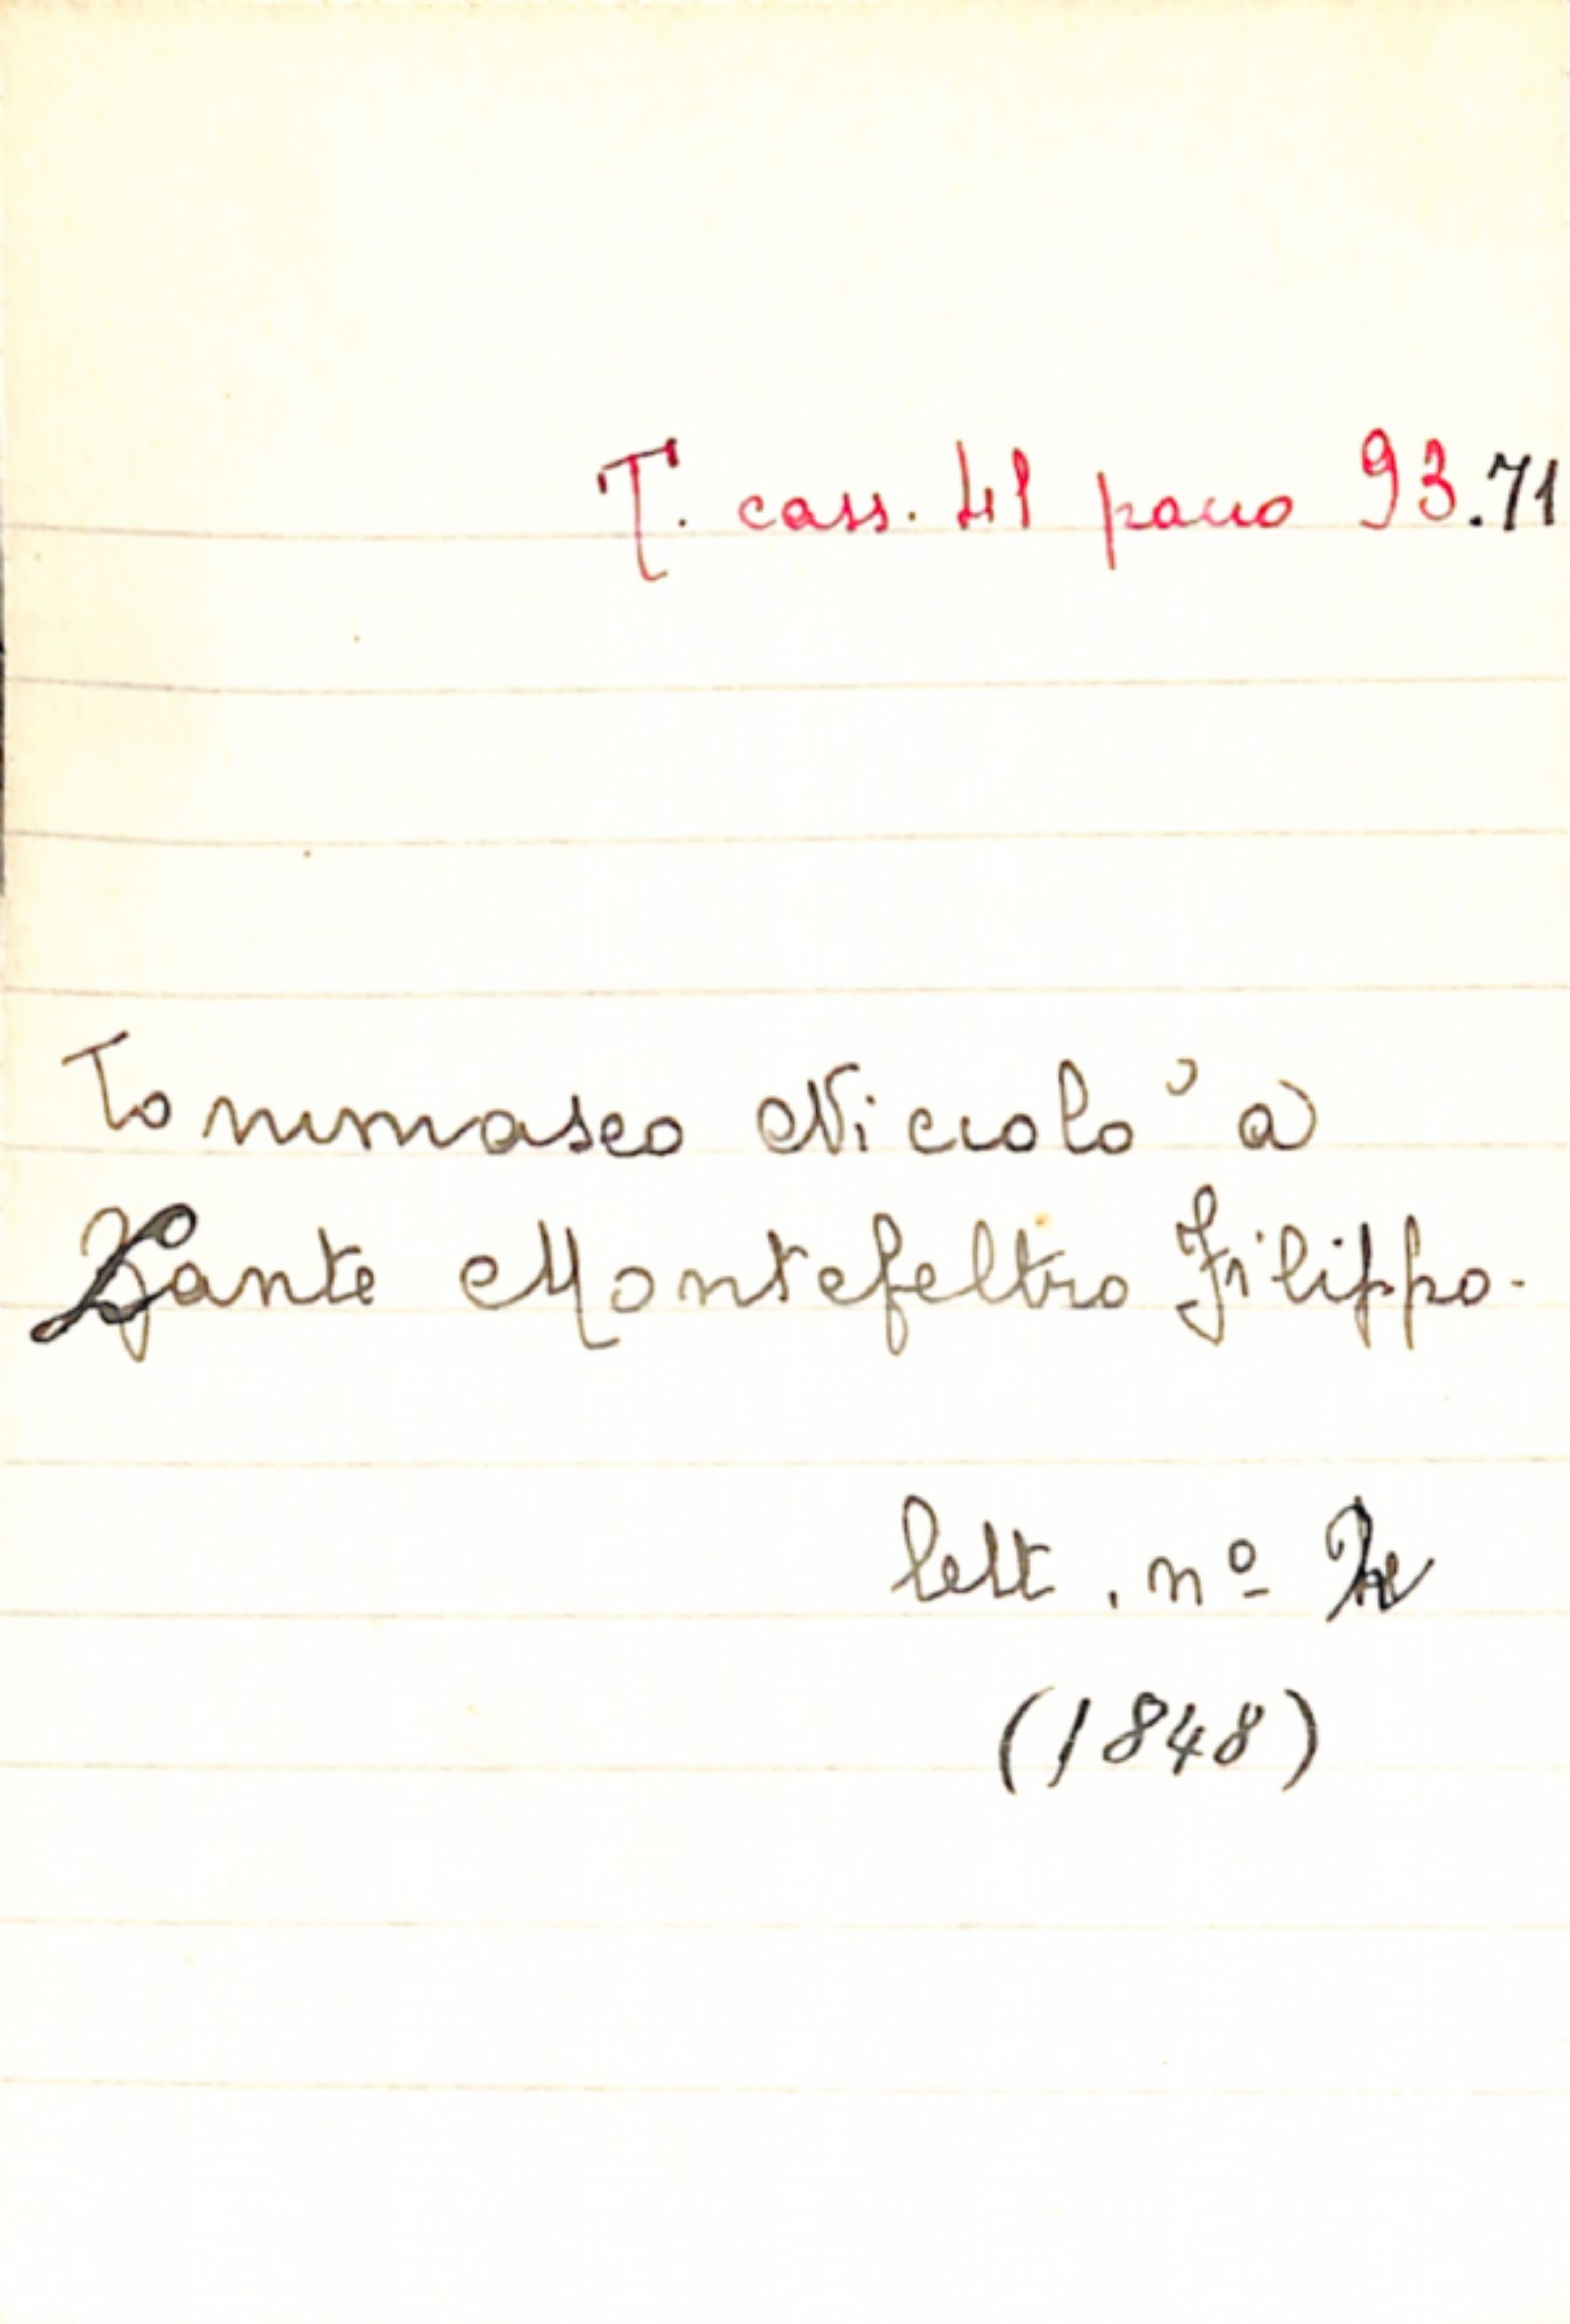 T. cass. 41 pacco 93.71
Tommaseo Niccolò a
Lante Montefeltro Filippo.
lett. nº
(1848)